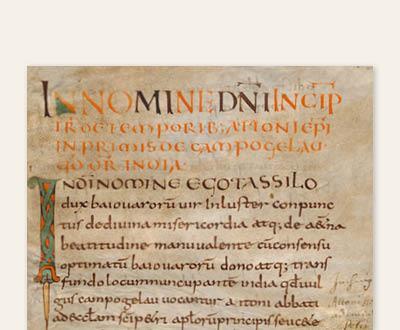 IN NOMINE DNI INCIP
TR DE TEMPORIB; ATTONI EPI
IN PRIMIS DE CAMPOGELAU
IN DI NOMINE EGO TASSILO
dux baiouarorū uir Inluster conpunc
tus de diuina misericordia atq; de
beatitudine manu ualente cū consensu
optimatū baiouarorū dono atq; trans
fundo locum nuncupante india qđ uul
gus campogelau uocantur attoni abbati
ad ecclam sci petri aplorū principis seu